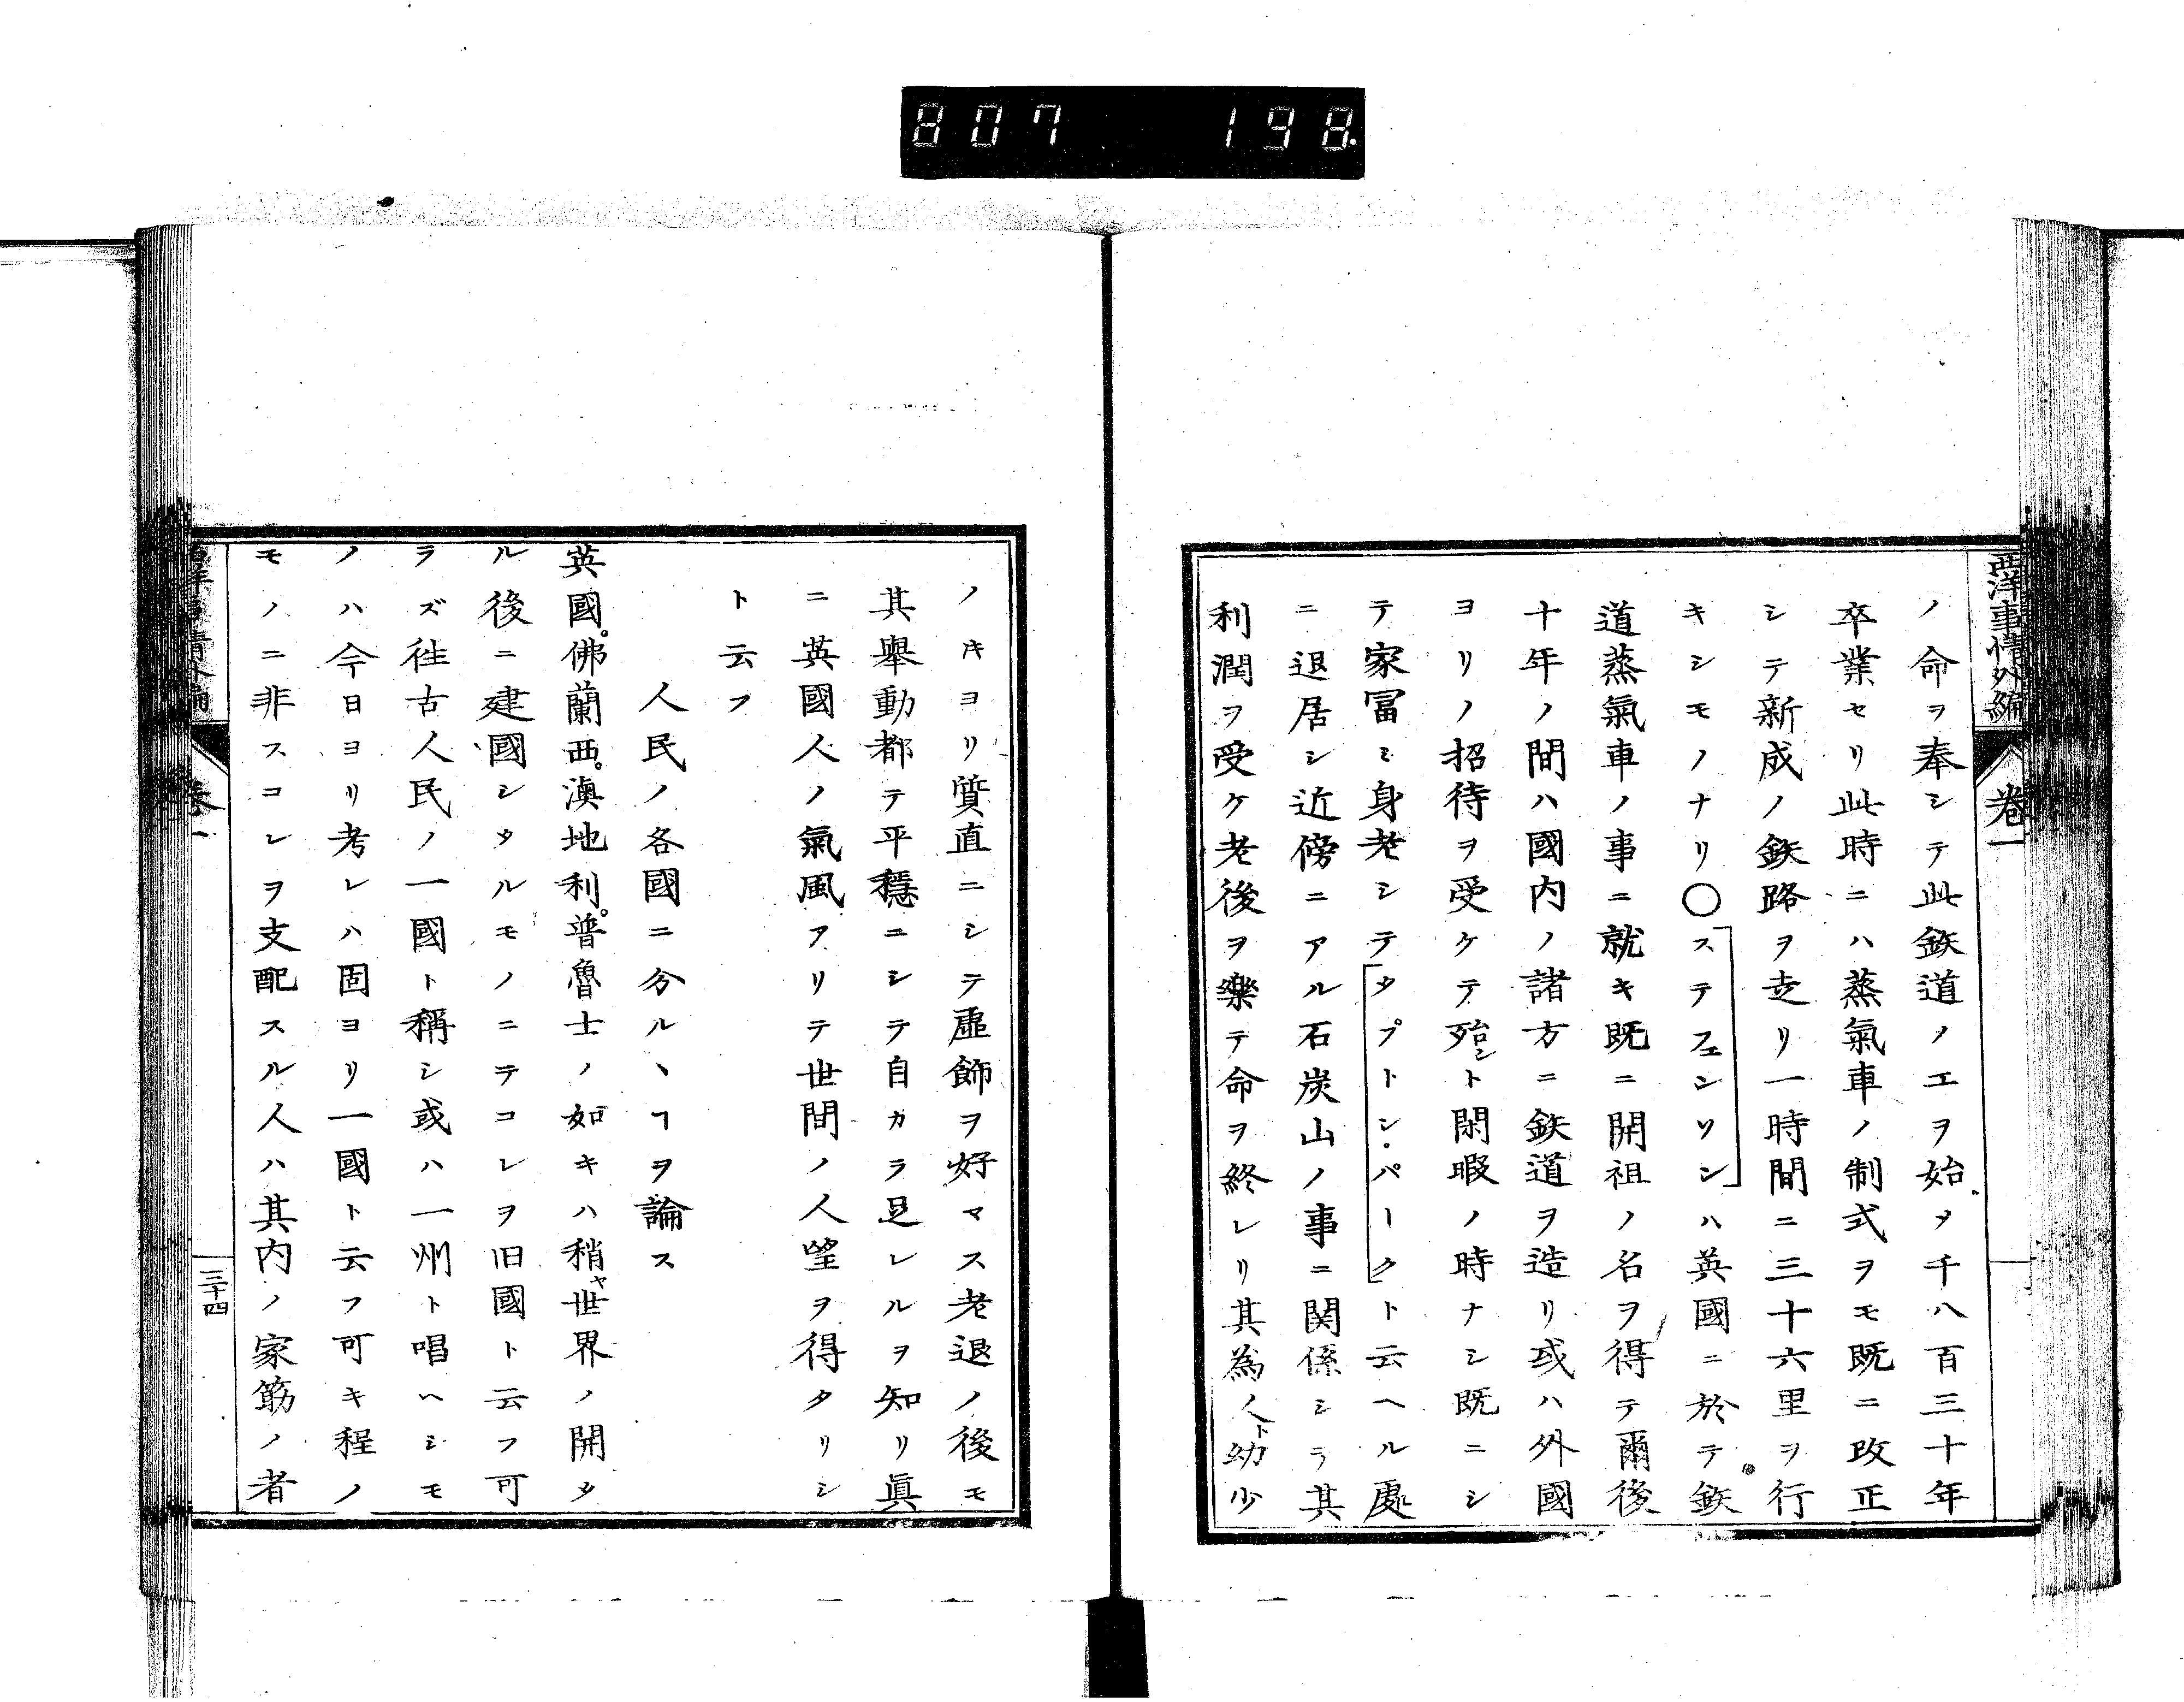 807 198.
西洋事情外編
卷一
ノ命ヲ奉シテ此鉄道ノエヲ始メ千八百三十年
卒業セリ此時ニハ蒸氣車ノ制式ヲモ既ニ改正
シテ新成ノ鉄路ヲ走リ一時間ニ三十六里ヲ行
キシモノナリ〇ステフェンソンハ英國ニ於テ鉄
道蒸氣車ノ事ニ就キ既ニ開祖ノ名ヲ得テ爾後
十年ノ間ハ國内ノ諸方ニ鉄道ヲ造リ或ハ外國
ヨリノ招待ヲ受ケテ殆ント閑暇ノ時ナシ既ニシ
テ家冨ミ身老シテタプトン・パークト云ヘル處
ニ退居シ近傍ニアル石炭山ノ事ニ関係シテ其
利潤ヲ受ケ老後ヲ樂テ命ヲ終レリ其為人ト幼少
ノキヨリ質直ニシテ虚飾ヲ好マス老退ノ後モ
其舉動都テ平穩ニシテ自カラ足レルヲ知リ眞
ニ英國人ノ氣風アリテ世間ノ人望ヲ得タリシ
ト云フ
人民ノ各國ニ分ルヽヿヲ論ス
英國。佛蘭西。澳地利。普魯士ノ如キハ稍ヤ世界ノ開タ
ル後ニ建國シタルモノニテコレヲ旧國ト云フ可
ラズ徃古人民ノ一國ト稱シ或ハ一州ト唱ヘシモ
ノハ今日ヨリ考レハ固ヨリ一國ト云フ可キ程ノ
モノニ非スコレヲ支配スル人ハ其内ノ家筋ノ者
卷一
三十四